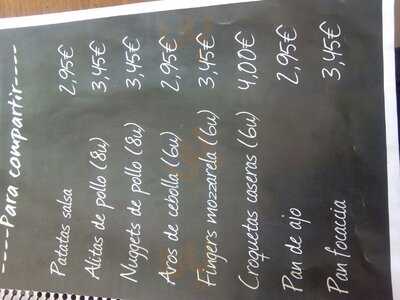 ----Para compartir----
Patatas salsa 2,95€
Alitas de pollo (8u) 3,45€
Nuggets de pollo (8u) 3,45€
Aros de cebolla (6u) 2,95€
Fingers mozzarela (6u) 3,45€
Croquetas caseras (6u) 4,00€
Pan de ajo 2,95€
Pan focaccia 3,45€